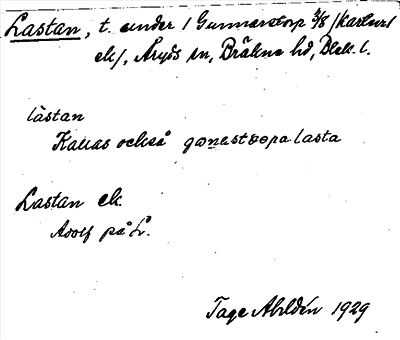 Lastan, t. under 1 Gunnarstorp 3/8 /Karlsrud
ek/, Åryds sn, Bräkne hd, Blek. l.
làstan
Kallas också gɷnastɷrpa lasta
Lastan ek.
Adolf på L.
Tage Ahldén 1929